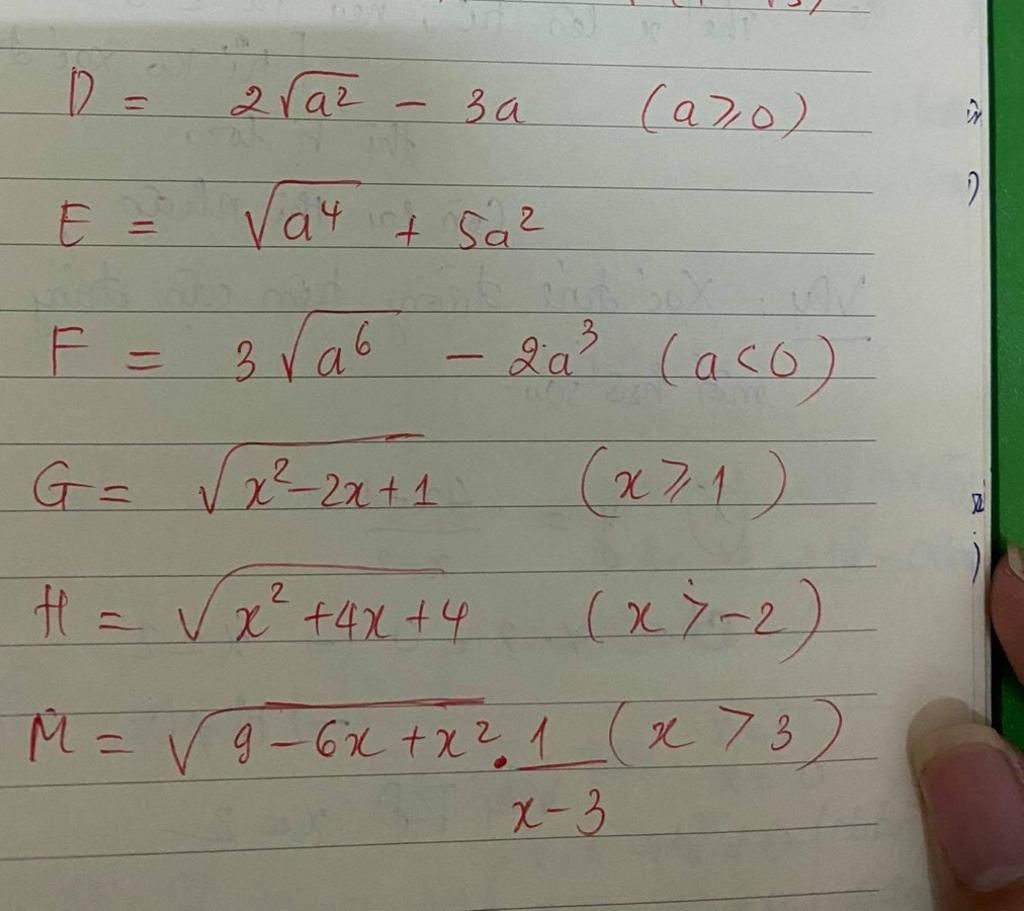 D = 2√a² - 3a (a ≥ 0)
E = √a⁴ + 5a²
F = 3√a⁶ - 2a³ (a < 0)
G = √x²-2x+1 (x ≥ 1)
H = √x²+4x+4 (x > -2)
M = √9-6x+x² . 1/x-3 (x > 3)